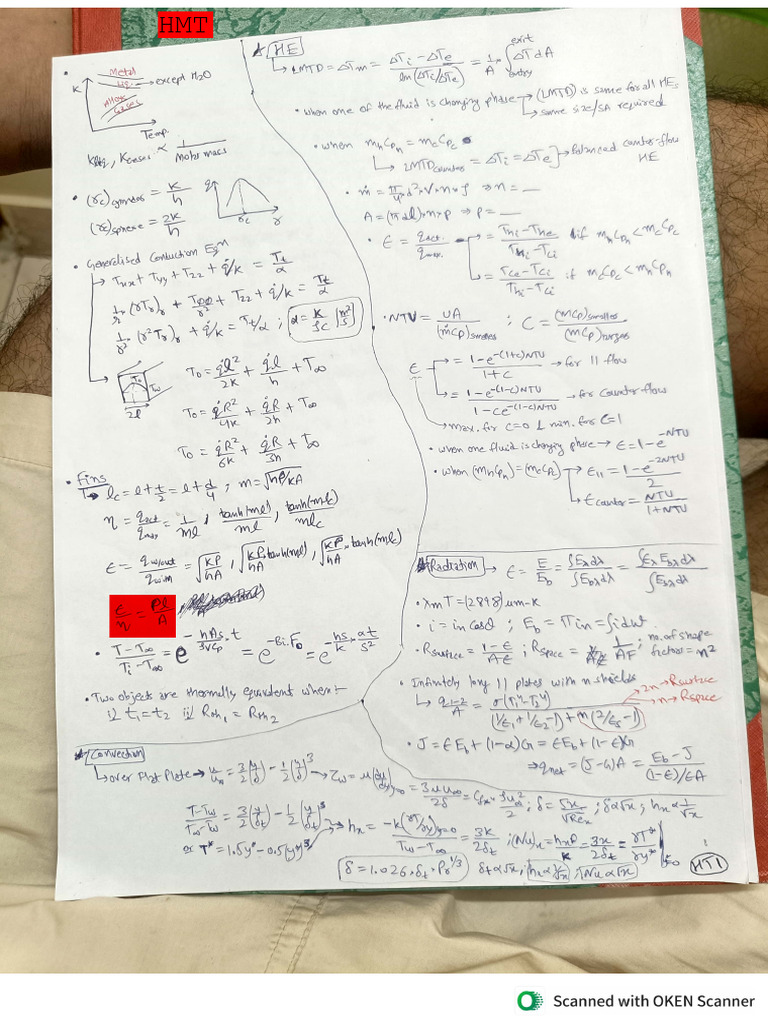 HMT
• K
Metal
Liq → except H2O
Alloy
Gases
Temp.
Kliq, Kgases ∝ 1/√Molar mass
• (rc)cylinder = K/h
(rc)sphere = 2K/h
q
rc
r
• Generalised Conduction Eqn
→ Txx + Tyy + Tzz + q̇/K = Tt/α
1/r (rTr)r + Tθθ/r² + Tzz + q̇/K = Tt/α
1/r² (r²Tr)r + q̇/K = Tt/α ; α = K/ρC [m²/s]
To
Tw
2l
To = q̇l²/2K + q̇l/h + T∞
To = q̇R²/4K + q̇R/2h + T∞
To = q̇R²/6K + q̇R/3h + T∞
• Fins
→ lc = l + t/2 = l + d/4 ; m = √hP/KA
η = qact/qmax = 1/ml , tanh(ml)/ml , tanh(mlc)/mlc
ε = qw/out/qwith = √KP/hA , √KP/hA tanh(ml) , √KP/hA × tanh(mlc)
ε/η = Pl/A
• T-T∞/Ti-T∞ = e^(-hAs.t/ρVCp) = e^(-Bi.Fo) = e^(-hs/k × αt/s²)
• Two objects are thermally equivalent when:-
i) t1 = t2 ii) Rth1 = Rth2
* HE
→ LMTD = ΔTm = ΔTi - ΔTe / ln(ΔTi/ΔTe) = 1/A × ∫ exit entry ΔTdA
• when one of the fluid is changing phase → (LMTD) is same for all HEs
→ same size/SA required
• when mhCph = mcCpc
→ LMTDcounter = ΔTi = ΔTe] → balanced counter-flow HE
• ṁ = π/4 d² × V × n × ρ ⇒ n = __
A = (πdl) × n × p ⇒ p = __
• ε = qact/qmax → = Thi - The / Thi - Tci if mhCph < mcCpc
→ = Tce - Tci / Thi - Tci if mcCpc < mhCph
• NTU = UA/(ṁCp)smaller ; C = (ṁCp)smaller/(ṁCp)larger
ε → = 1-e^-(1+c)NTU / 1+c → for || flow
→ = 1-e^-(1-c)NTU / 1-ce^-(1-c)NTU → for counter flow
→ max. for c=0 & min. for c=1
• when one fluid is changing phase → ε = 1-e^-NTU
• when (mhCph) = (mcCpc) → ε|| = 1-e^-2NTU / 2
→ εcounter = NTU / 1+NTU
* Radiation → ε = E/Eb = ∫Eλdλ / ∫Ebλdλ = ∫ελEbλdλ / ∫Ebλdλ
• λmT = (2898) μm-K
• i = in cosθ ; Eb = πin = ∫idω
• Rsurface = 1-ε/Aε ; Rspace = 1/AF ; no. of shape factors = n²
• Infinitely long || plates with n shields
→ q1-2/A = σ(T1⁴-T2⁴) / (1/ε1 + 1/ε2 - 1) + n(2/εs - 1)
2n → Rsurface
n → Rspace
• J = εEb + (1-α)G = εEb + (1-ε)G
⇒ qnet = (J-G)A = Eb - J / (1-ε)/εA
* Convection
→ over Flat Plate → u/u∞ = 3/2 (y/δ) - 1/2 (y/δ)³ → τw = μ(du/dy)y=0 = 3μu∞/2δ = Cfx × ρu∞²/2 ; δ = 5x/√Rex ; δ∝√x ; hx∝1/√x
T-Tw/T∞-Tw = 3/2 (y/δt) - 1/2 (y/δt)³ → hx = -k(∂T/∂y)y=0 / Tw-T∞ = 3k/2δt ; (Nu)x = hxℓ/K = 3x/2δt = ∂T*/∂y* |y*=0
or T* = 1.5y* - 0.5(y*)³
δ = 1.026 × δt × Pr^1/3 δt∝√x , hx∝1/√x ; Nu∝√x
HT1
Scanned with OKEN Scanner